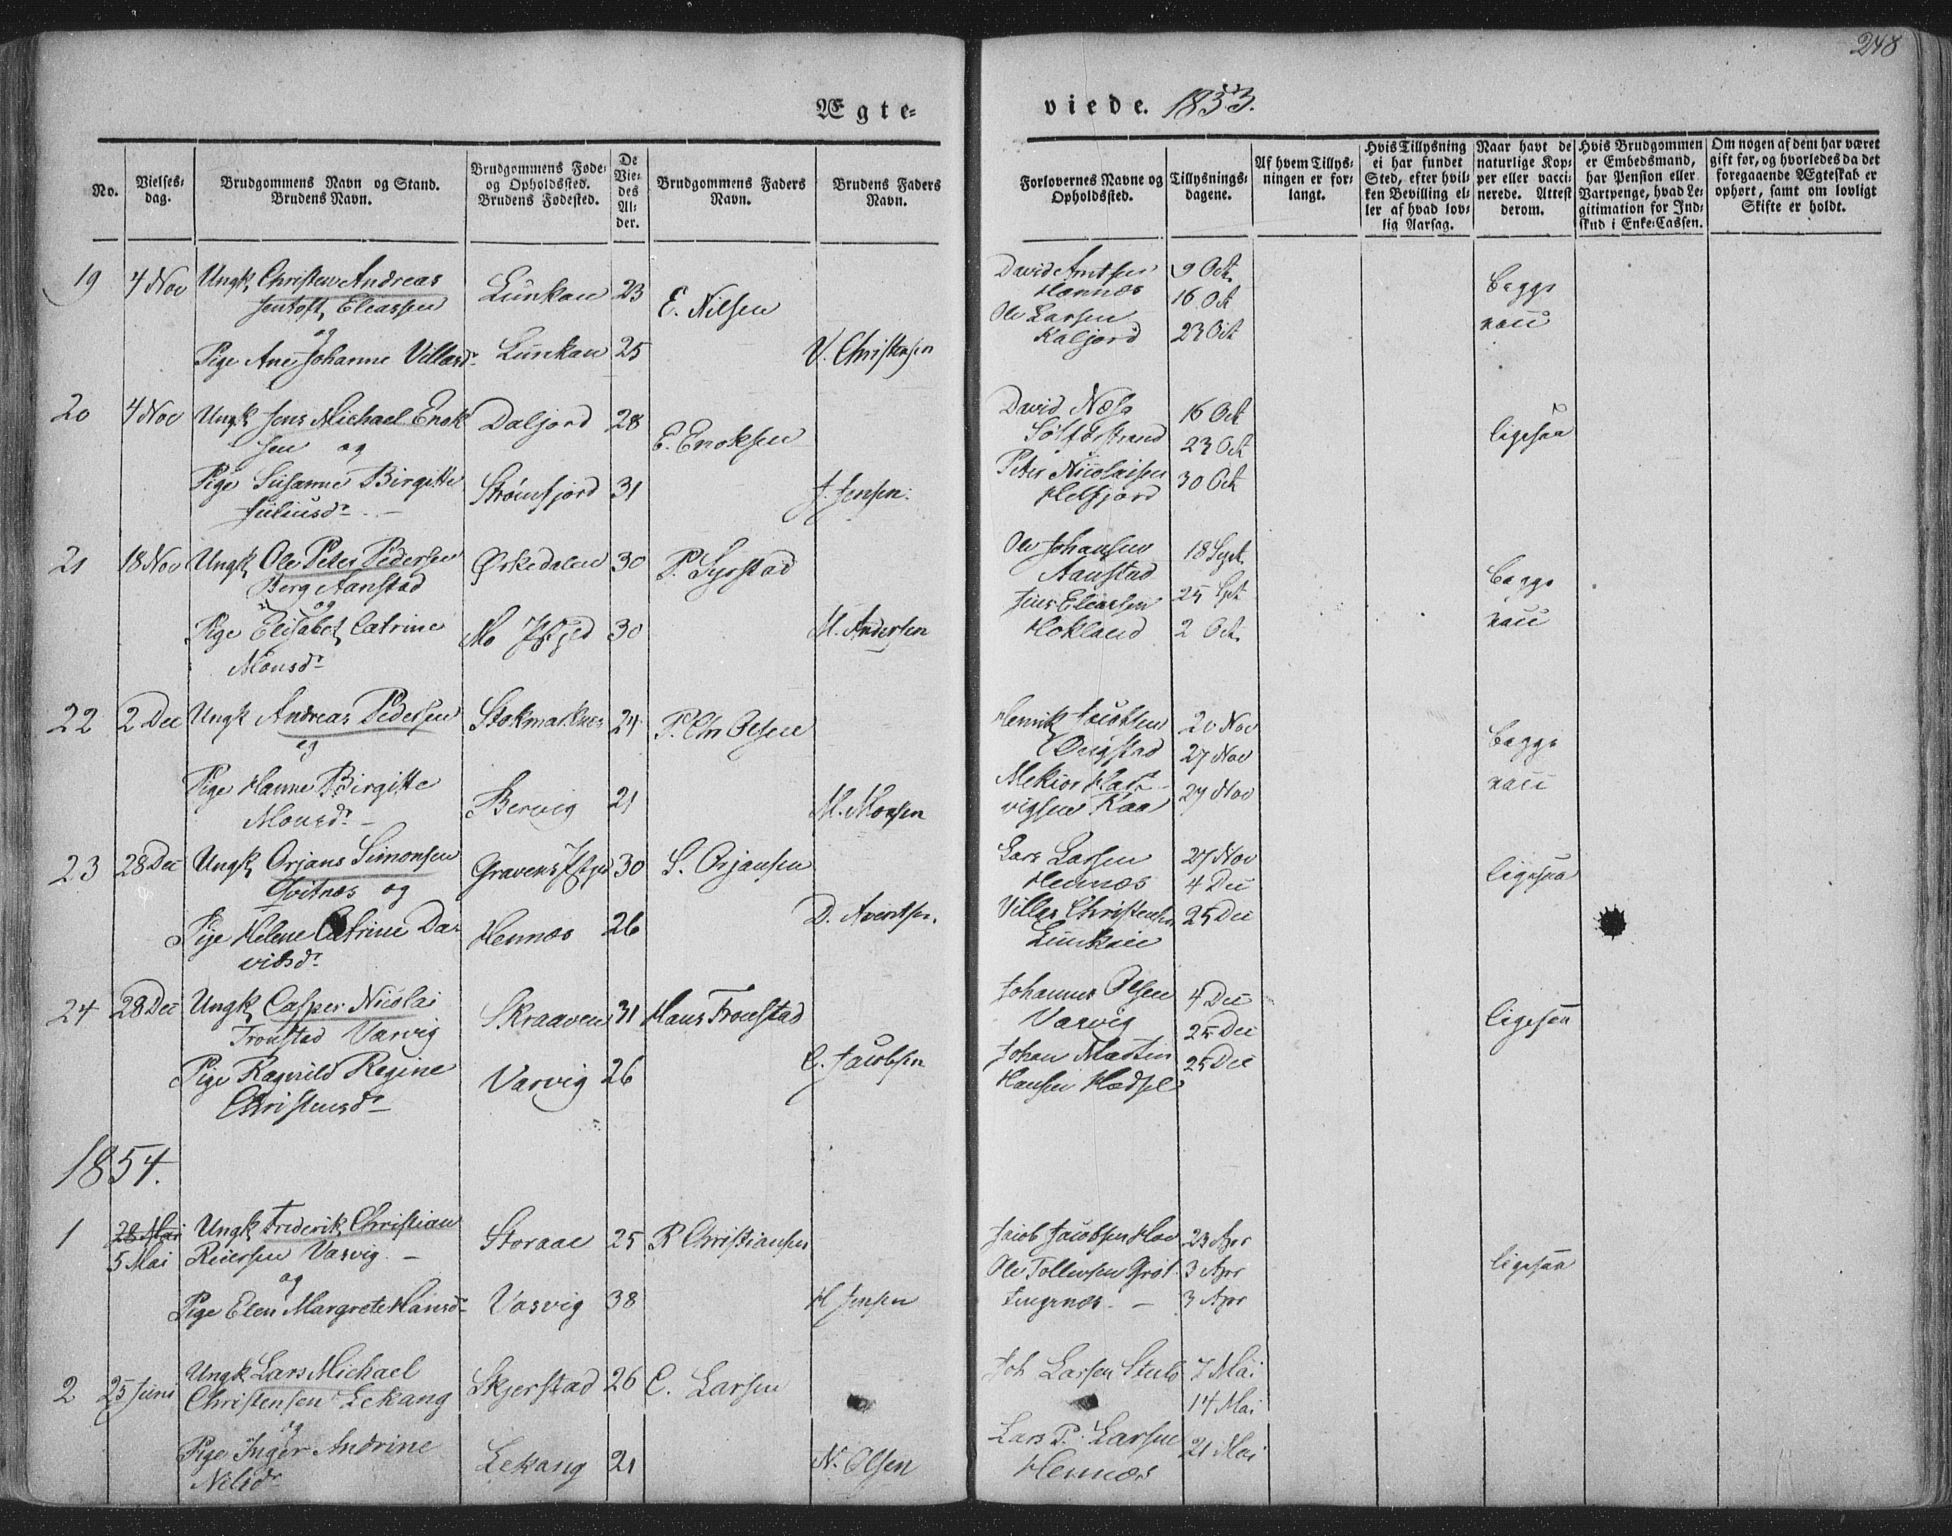 248
Ægte-
viede. 1853.
No.
Vielses-
dag.
Brudgommens Navn og Stand.
Brudens Navn.
Brudgommens Føde-
og Opholdssted.
Brudens Fødested.
De
Vie-
des
Al-
der.
Brudgommens Faders
Navn.
Brudens Faders
Navn.
Forlovernes Navne og
Opholdssted.
Tillysnings-
dagene.
Af hvem Tillys-
ningen er for-
langt.
Hvis Tillysning
ei har fundet
Sted, efter hvil-
ken Bevilling el-
ler af hvad lov-
lig Aarsag.
Naar havt de
naturlige Kop-
per eller vacci-
nerede. Attest
derom.
Hvis Brudgommen
er Embedsmand,
har Pension eller
Vartpenge, hvad Le-
gitimation for Ind-
skud i Enke-Cassen.
Om nogen af dem har været
gift før, og hvorledes da det
foregaaende Ægteskab er
ophørt, samt om lovligt
Skifte er holdt.
19 4 Nov Ungk Christen Andreas
Jentoft Eliassen Lunkan 23 E. Nilsen
og
Pige Ane Johanne Villasd. Lunkan 25 V. Christensen
David Arntsen 9 Oct
Hennæs 16 Oct
Ole Larsen
Kaljord 23 Oct
begge
vacc
20 4 Nov Ungk Jens Michael Enok
sen og Daljord 28 E. Enoksen
Pige Susanne Birgitte
Juliusdr. Strømfjord 31 J. Jensen
David Næss 16 Oct
23 Oct
Peter Nicolaisen 30 Oct
Helfjord
ligesaa
21 18 Nov Ungk Ole Peter Pedersen
Berg Aanstad Ørkedalen 30
og
Pige Elisabet Catrine
Monsdr Mo 30 M. Andersen
Ole Johansen 18 Sept
Aanstad 25 Spt
Jens Eliassen
Hokland 2 Oct
begge
vacc
22 2 Dec Ungk Andreas Pedersen Stokmarknes 24 P. Chr Olsen
og
Pige Hanne Birgitte
Monsdr. Bervig 21 M. Monsen
Henrik Jacobsen 20 Nov
27 Nov
Mekior Hart-
vigsen Raa 27 Nov
begge
vacc
23 28 Dec Ungk Orjans Simonsen
Qvitnæs og Gravens 30 S. Orjansen
Pige Helene Catrine Da-
vidsdr Hennæs 26 D. Arentsen.
Lars Larsen 27 Nov
Hennæs 4 Dec
Villas Christensen 25 Dec
Lunkan
ligesaa
24 28 Dec Ungk Casper Nicolai
Tronstad Varvig Skraaven 31 Hans Tronstad
Pige Ragnild Regine
Christensdr Varvig 26 C. Jacobsen
Johannes Olsen 4 Dec
Varvig 25 Dec
Johan Martin 25 Dec
Hansen Hadsel
ligesaa
1854.
1 28 Mai
5 Mai
Ungk Frederik Christian
Reiersen Varvig Storaae 25 R Christiansen
og
Pige Elen Margrete Hansdr Varvig 38 H Jensen
Jacob Jacobsen 23 Apr
Ole Tollevsen Grøt- 3 Apr
3 Apr
ligesaa
2 25 Juni Ungk Lars Michael
Christensen Lekang Skjerstad 26 C. Larsen
og
Pige Inger Andrine
Nilsdr Lekang 21 N. Olsen
Joh Larsen Stub 7 Mai
14 Mai
Lars P. Larsen 21 Mai
Hennæs